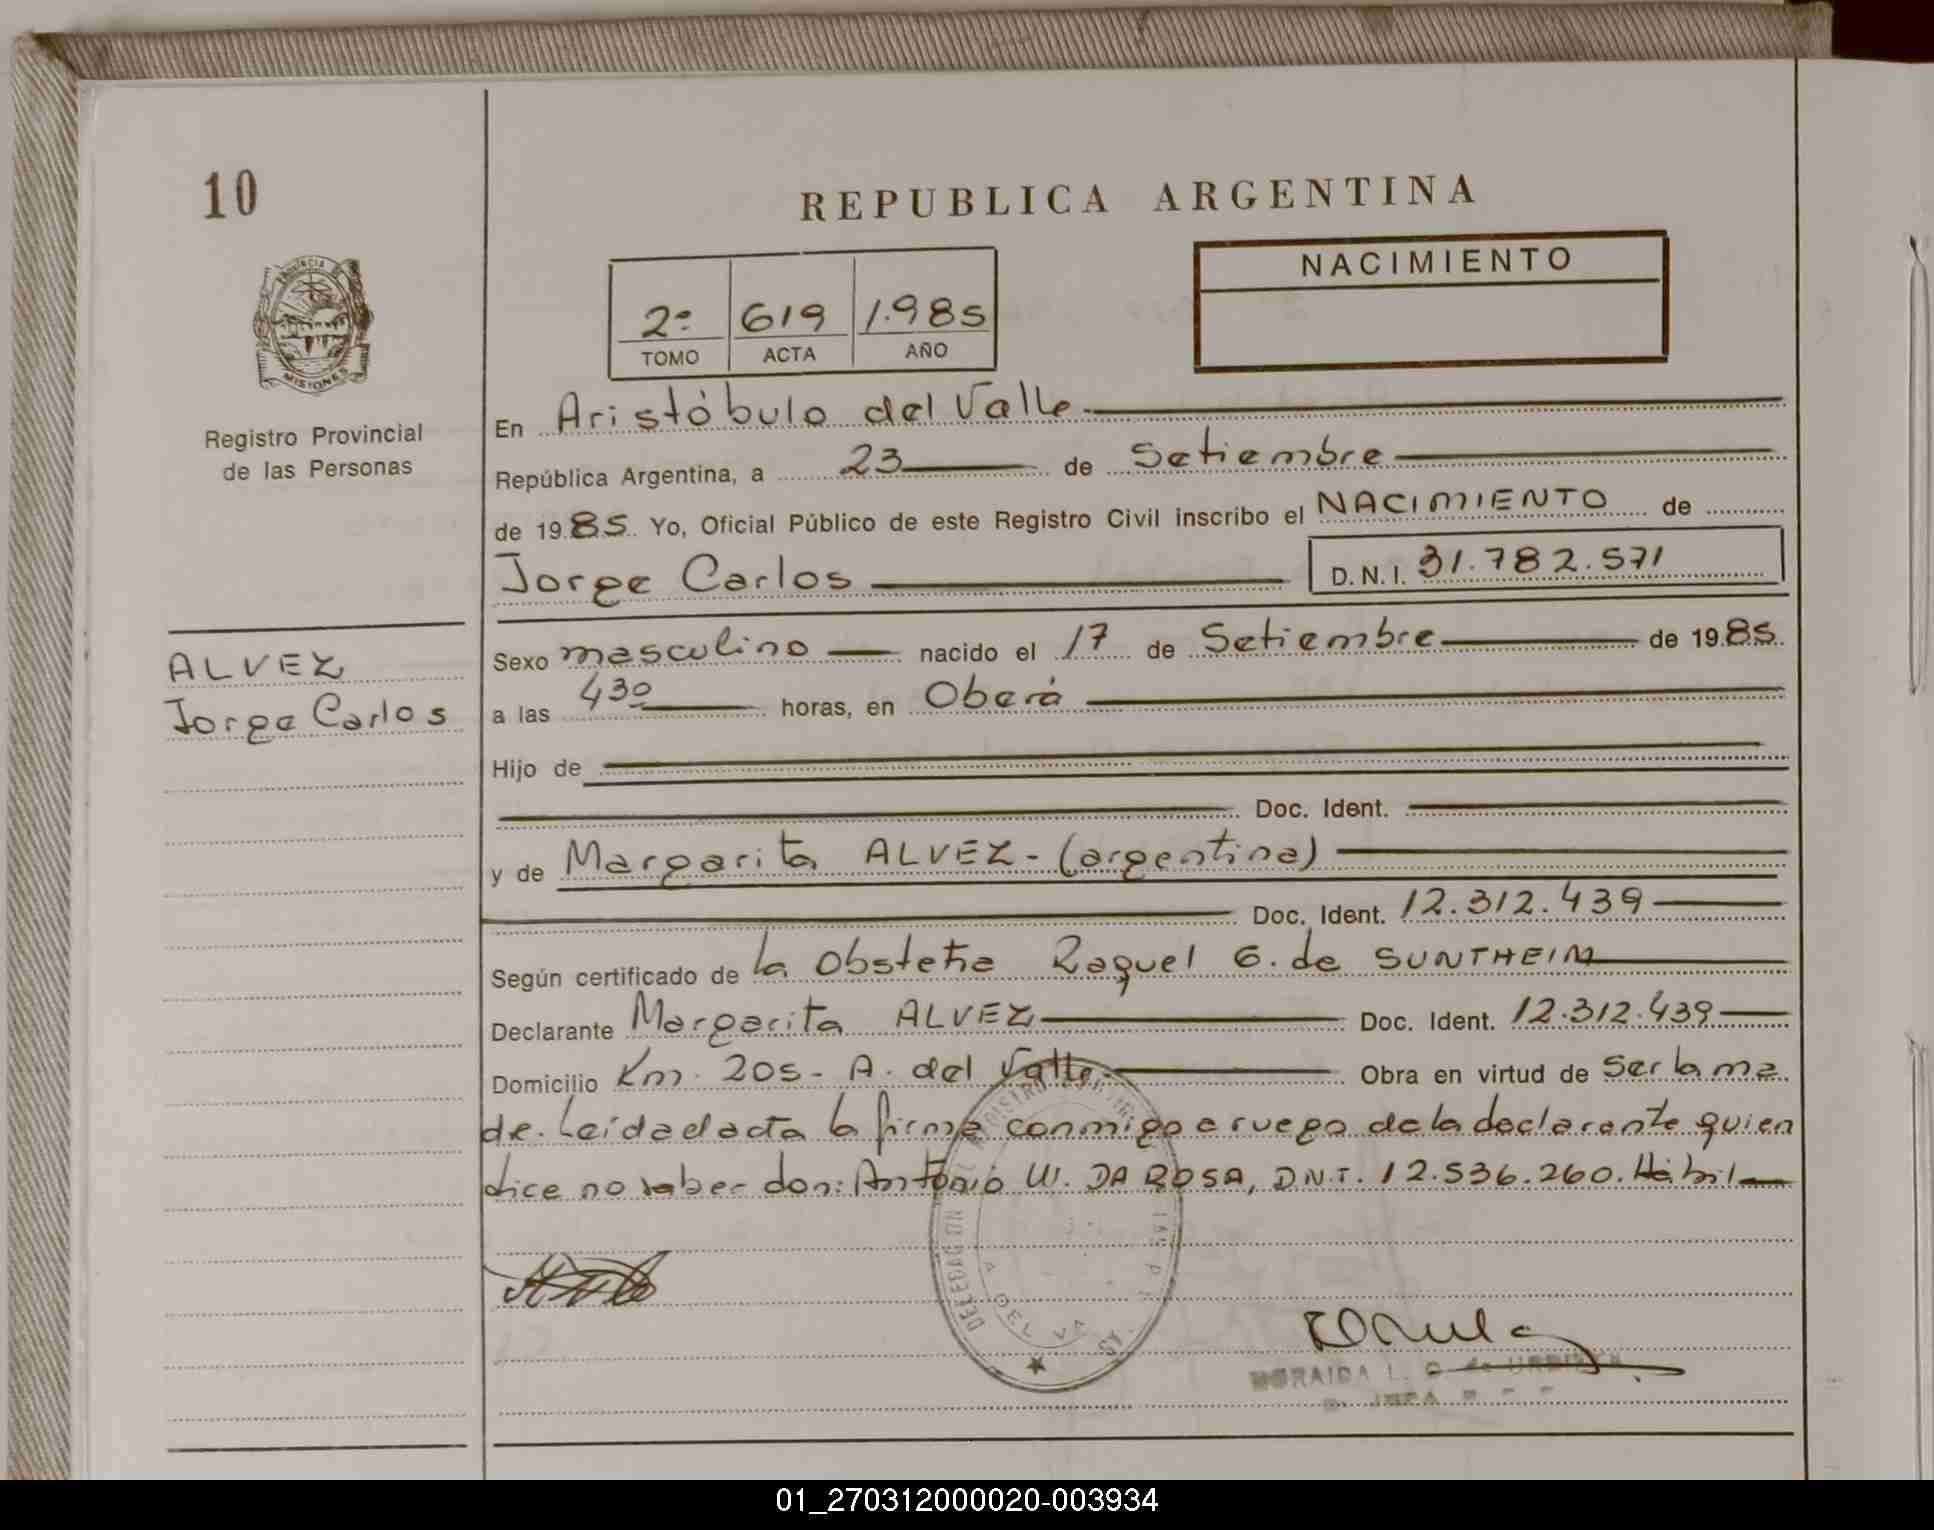 10
REPUBLICA ARGENTINA
PROVINCIA DE
MISIONES
Registro Provincial
de las Personas
2º 619 1.985
TOMO ACTA AÑO
NACIMIENTO
En Aristóbulo del Valle
República Argentina, a 23 de Setiembre
de 1985. Yo, Oficial Público de este Registro Civil inscribo el NACIMIENTO de
Jorge Carlos D.N.I. 31.782.571
ALVEZ
Jorge Carlos
Sexo masculino nacido el 17 de Setiembre de 1985.
a las 430 horas, en Oberá
Hijo de
Doc. Ident.
y de Margarita ALVEZ - (argentina)
Doc. Ident. 12.312.439
Según certificado de la Obstetra Raquel G. de SUNTHEIM
Declarante Margarita ALVEZ Doc. Ident. 12.312.439
Domicilio Km. 205 - A. del Valle Obra en virtud de Ser la ma
dre. Leída el acta la firma conmigo a ruego de la declarante quien
dice no saber don: Antonio W. DA ROSA, D.N.I. 12.536.260. Hábil
DELEGACION
A. DEL VA
MORAIDA L. G. de
01_270312000020-003934